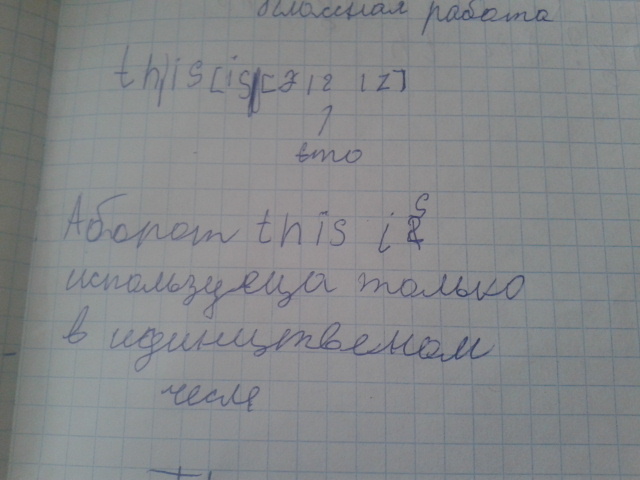 Классная работа
this [is] [ 7 12 12 ]
это
Аборот this is
используеца только
в идинцтвеном
чесле